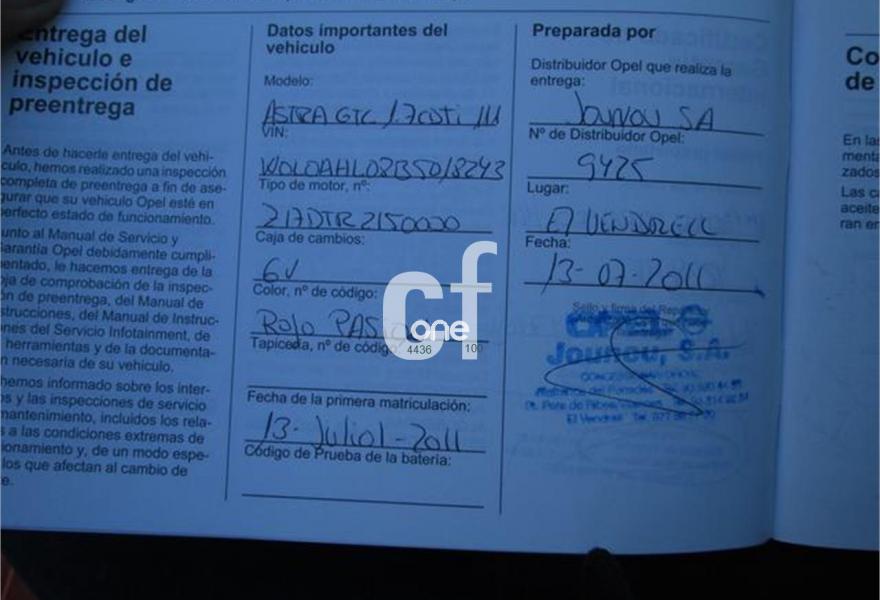 Entrega del
vehículo e
inspección de
preentrega
Antes de hacerle entrega del vehí-
culo, hemos realizado una inspección
completa de preentrega a fin de ase-
gurar que su vehículo Opel esté en
perfecto estado de funcionamiento.
unto al Manual de Servicio y
Garantía Opel debidamente cumpli-
entado, le hacemos entrega de la
oja de comprobación de la inspec-
ón de preentrega, del Manual de
strucciones, del Manual de Instruc-
nes del Servicio Infotainment, de
herramientas y de la documenta-
n necesaria de su vehículo.
hemos informado sobre los inter-
s y las inspecciones de servicio
mantenimiento, incluidos los rela-
s a las condiciones extremas de
ionamiento y, de un modo espe-
los que afectan al cambio de
e.
Datos importantes del
vehículo
Modelo:
ASTRA GTC 1.7 CDTi 111
VIN:
W0L0AHL08B5018243
Tipo de motor, nº:
Z17DTR2150000
Caja de cambios:
6V
Color, nº de código:
ROJO
Tapicería, nº de código:
Fecha de la primera matriculación:
13- Juliol - 2011
Código de Prueba de la batería:
Preparada por
Distribuidor Opel que realiza la
entrega:
Jounou SA
Nº de Distribuidor Opel:
9425
Lugar:
El VENDRELL
Fecha:
13-07-2011
Sello y firma del
Jounou, S.A.
CONCESIONARIO OFICIAL
El Vendrell Tel. 977
cf
one
4436 100
Co
de
En las
menta
zados
Las ca
aceite
ran en